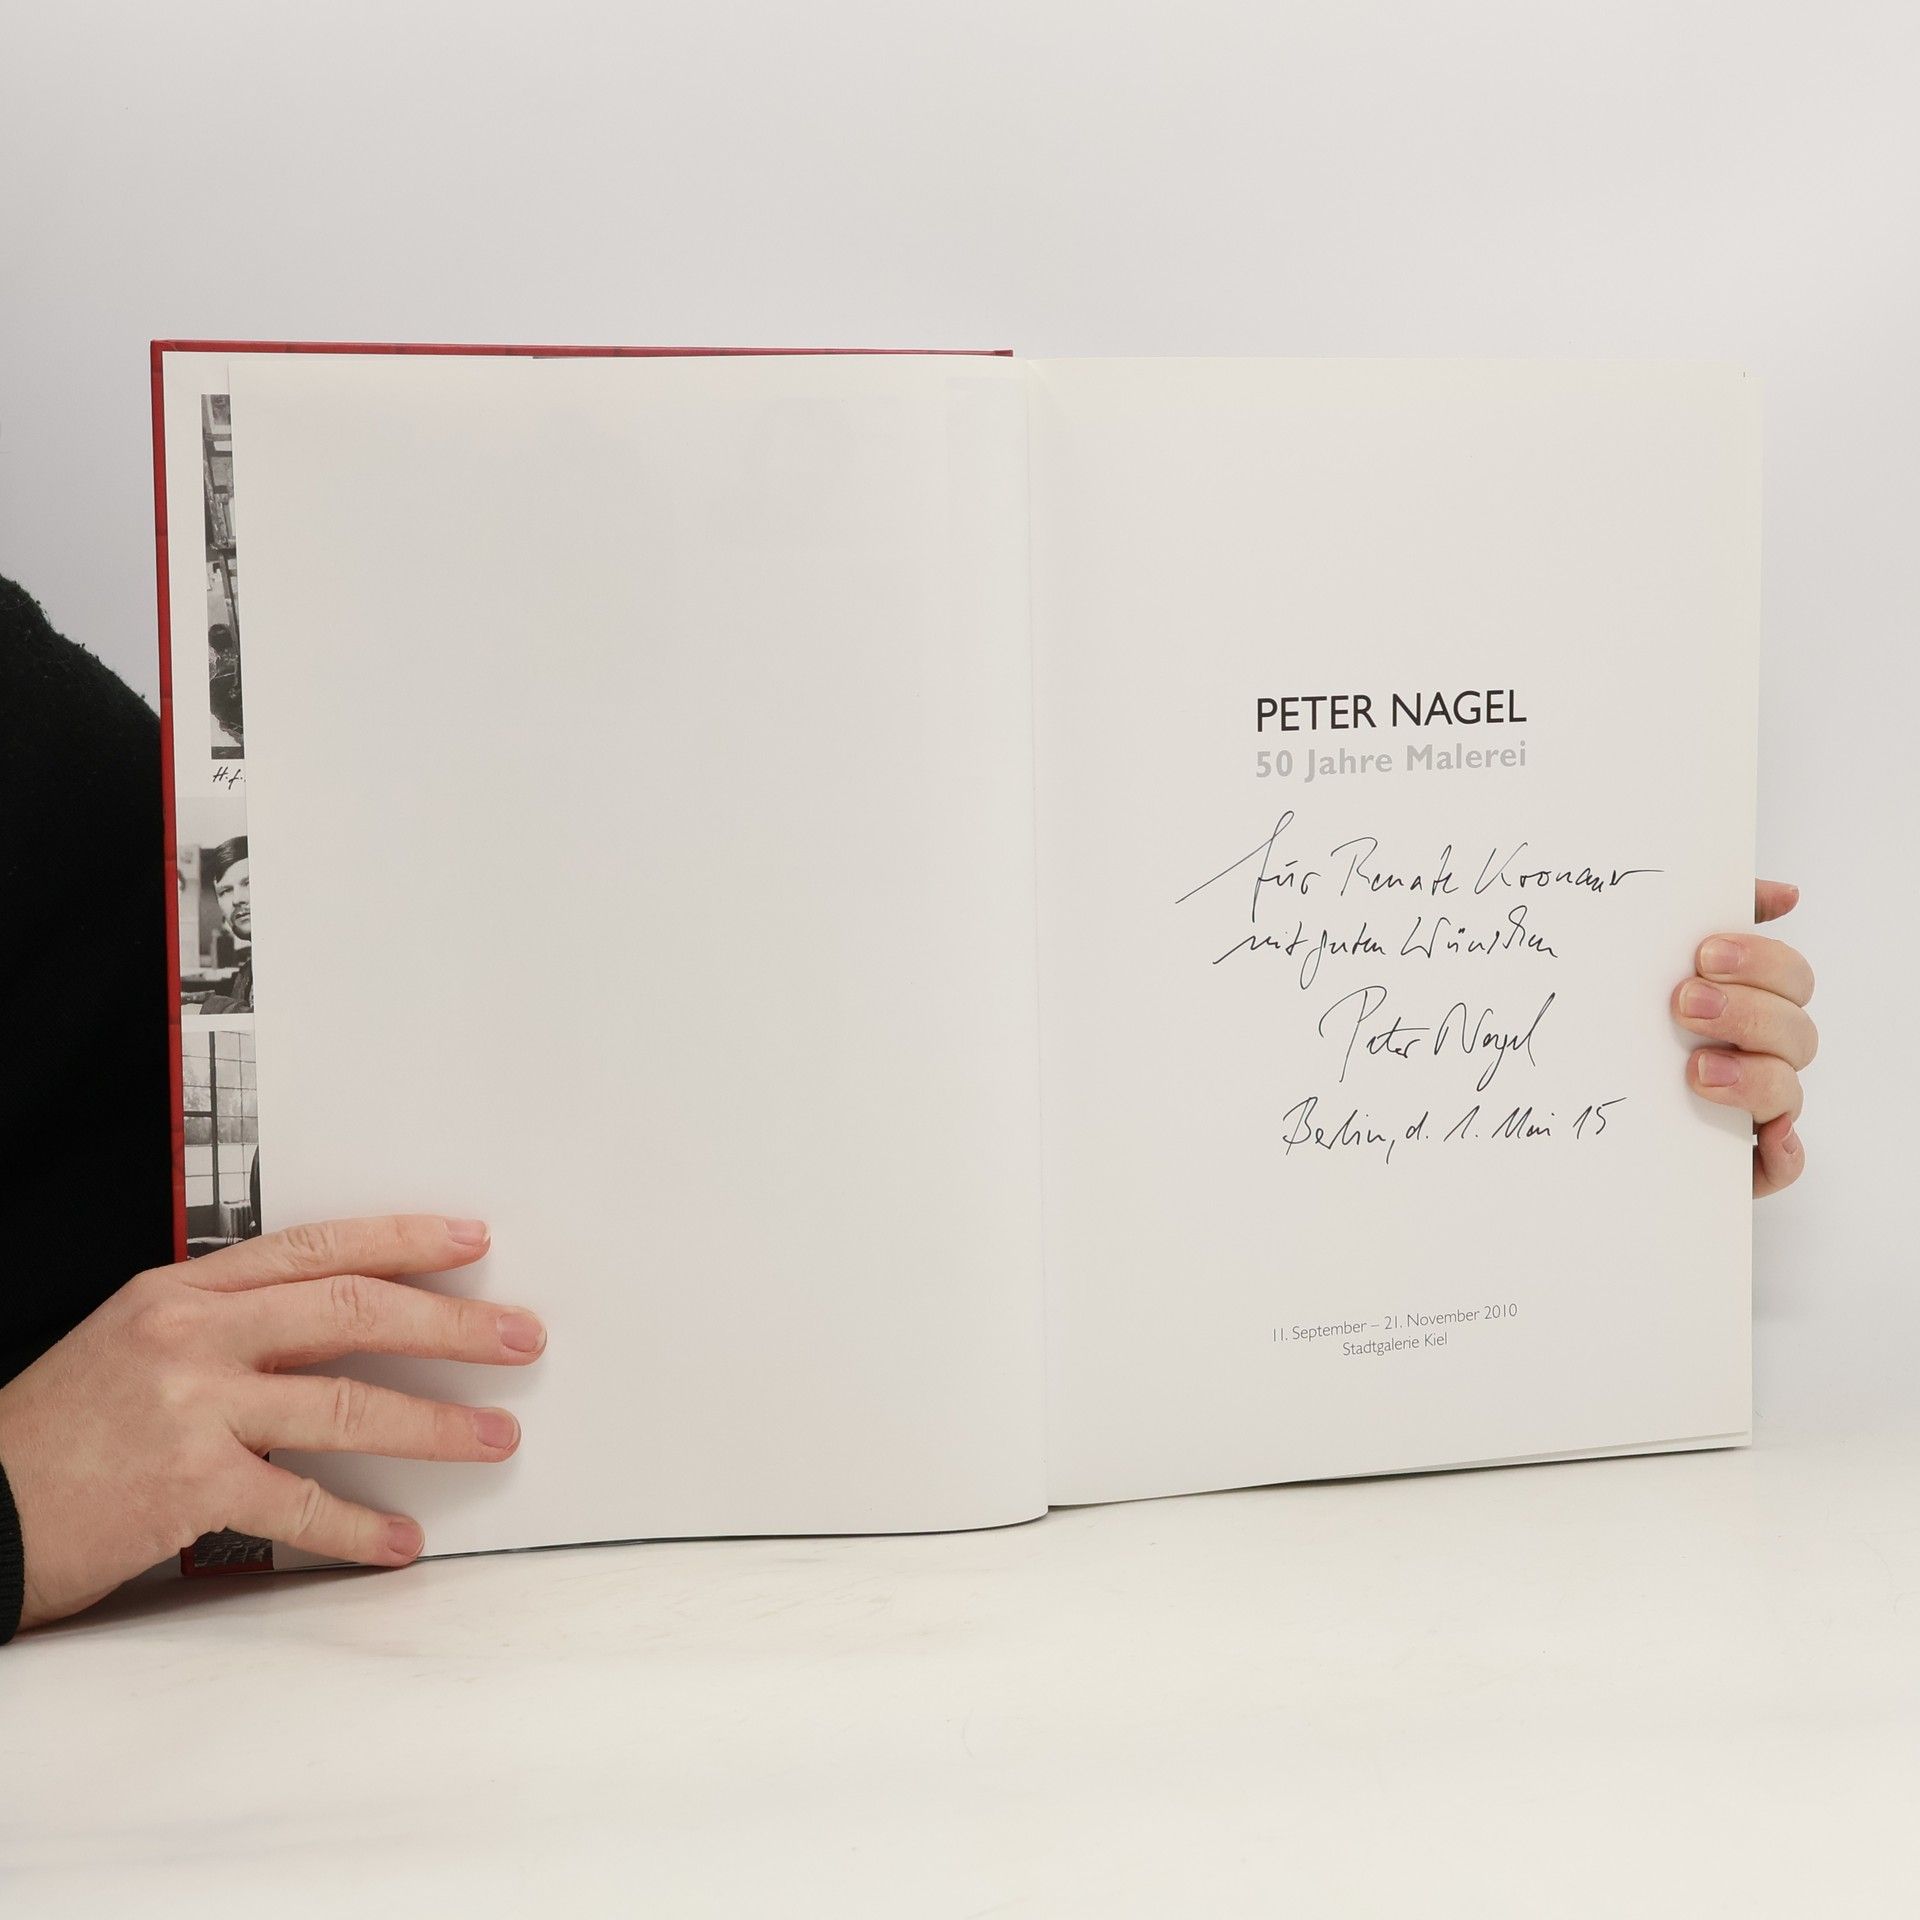 H.f.
PETER NAGEL
50 Jahre Malerei
für Renate Kronauer
mit guten Wünschen
Peter Nagel
Berlin, d. 1. Mai 15
11. September – 21. November 2010
Stadtgalerie Kiel